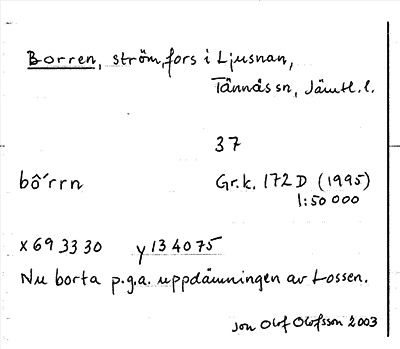 Borren, ström, fors i Ljusnan,
Tännäs sn, Jämtl. l.
37
bô´rrn
Gr.k. 172 D (1995)
1:50 000
x 69 33 30 y 13 40 75
Nu borta p.g.a. uppdämningen av Lossen.
Jon Olof Olofsson 2003